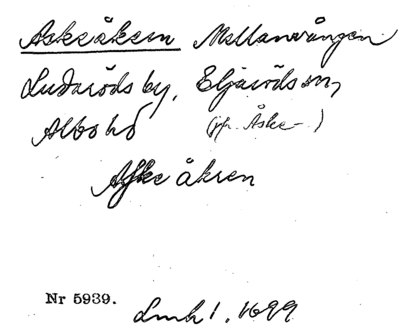 Askeåkern Mellanvången
Ludaröds by, Eljaröds sn,
Albo hd (jfr. Åske-)
Aske åkren
Nr 5939.
Lmh 1. 1699